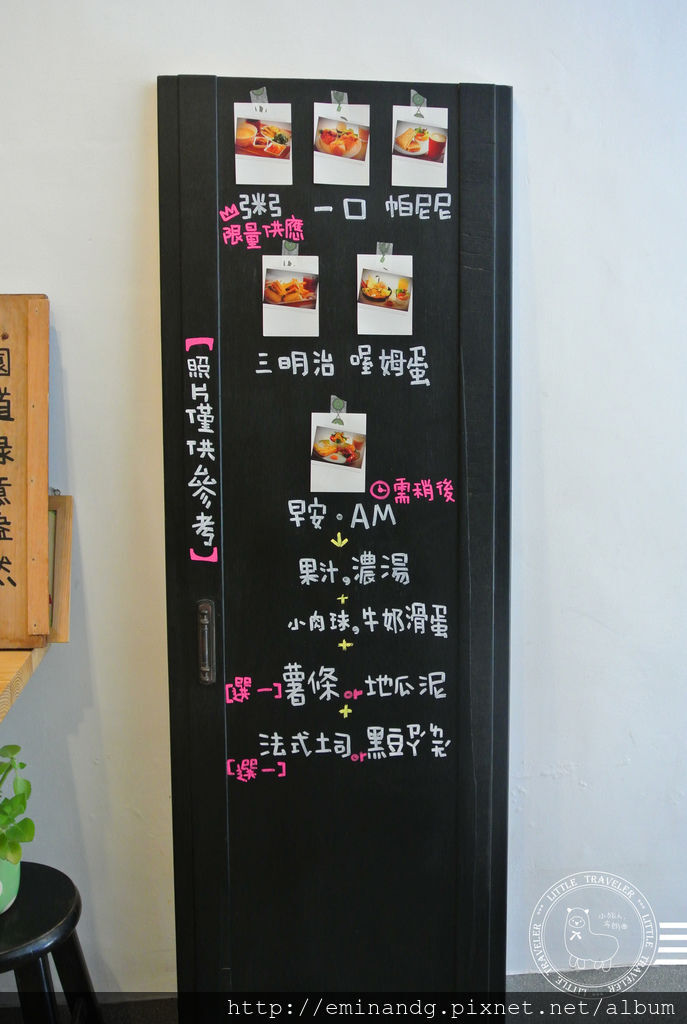 粥 一口 帕尼尼
限量供應
三明治 喔姆蛋
【照片僅供參考】
需稍後
早安·AM
果汁,濃湯
+
小肉球,牛奶滑蛋
+
[選一]薯條or地瓜泥
+
法式土司or黑豆ㄗㄠ
[選一]
道
然
LITTLE TRAVELER
LITTLE TRAVELER
http://eminandg.pixnet.net/album